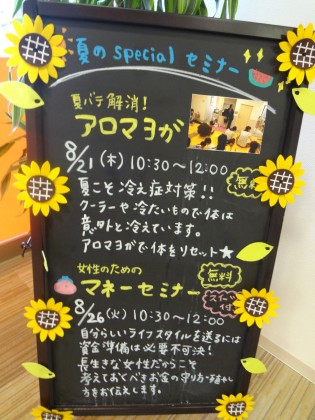 夏のspecialセミナー
夏バテ解消!
アロマヨガ
8/21(木)10:30~12:00
無料
夏こそ冷え症対策!!
クーラーや冷たいもので体は
意外と冷えています。
アロマヨガで体をリセット★
女性のための
無料
マネーセミナー
スイーツ付
8/26(火)10:30~12:00
自分らしいライフスタイルを送るには
資金準備は必要不可決!
長生きな女性だからこそ
考えておくべきお金の守り方・殖やし
方をお伝えします。